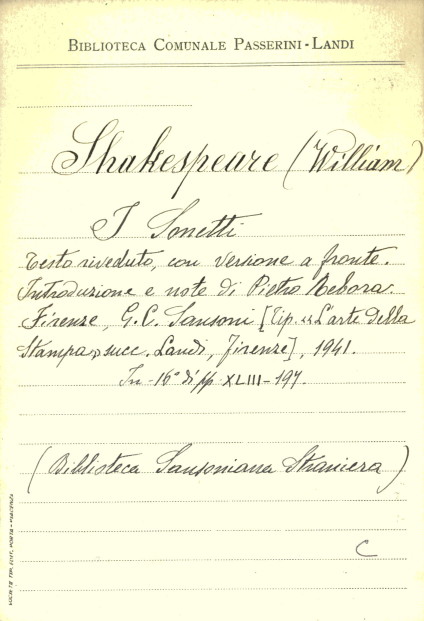 BIBLIOTECA COMUNALE PASSERINI-LANDI
Shakespeare (William)
I Sonetti
Testo riveduto, con versione a fronte.
Introduzione e note di Pietro Rebora.
Firenze, G. C. Sansoni [Tip. "L'arte della
Stampa" succ. Landi, Firenze], 1941.
In-16° di pp. XLIII-197.
(Biblioteca Sansoniana Straniera)
C